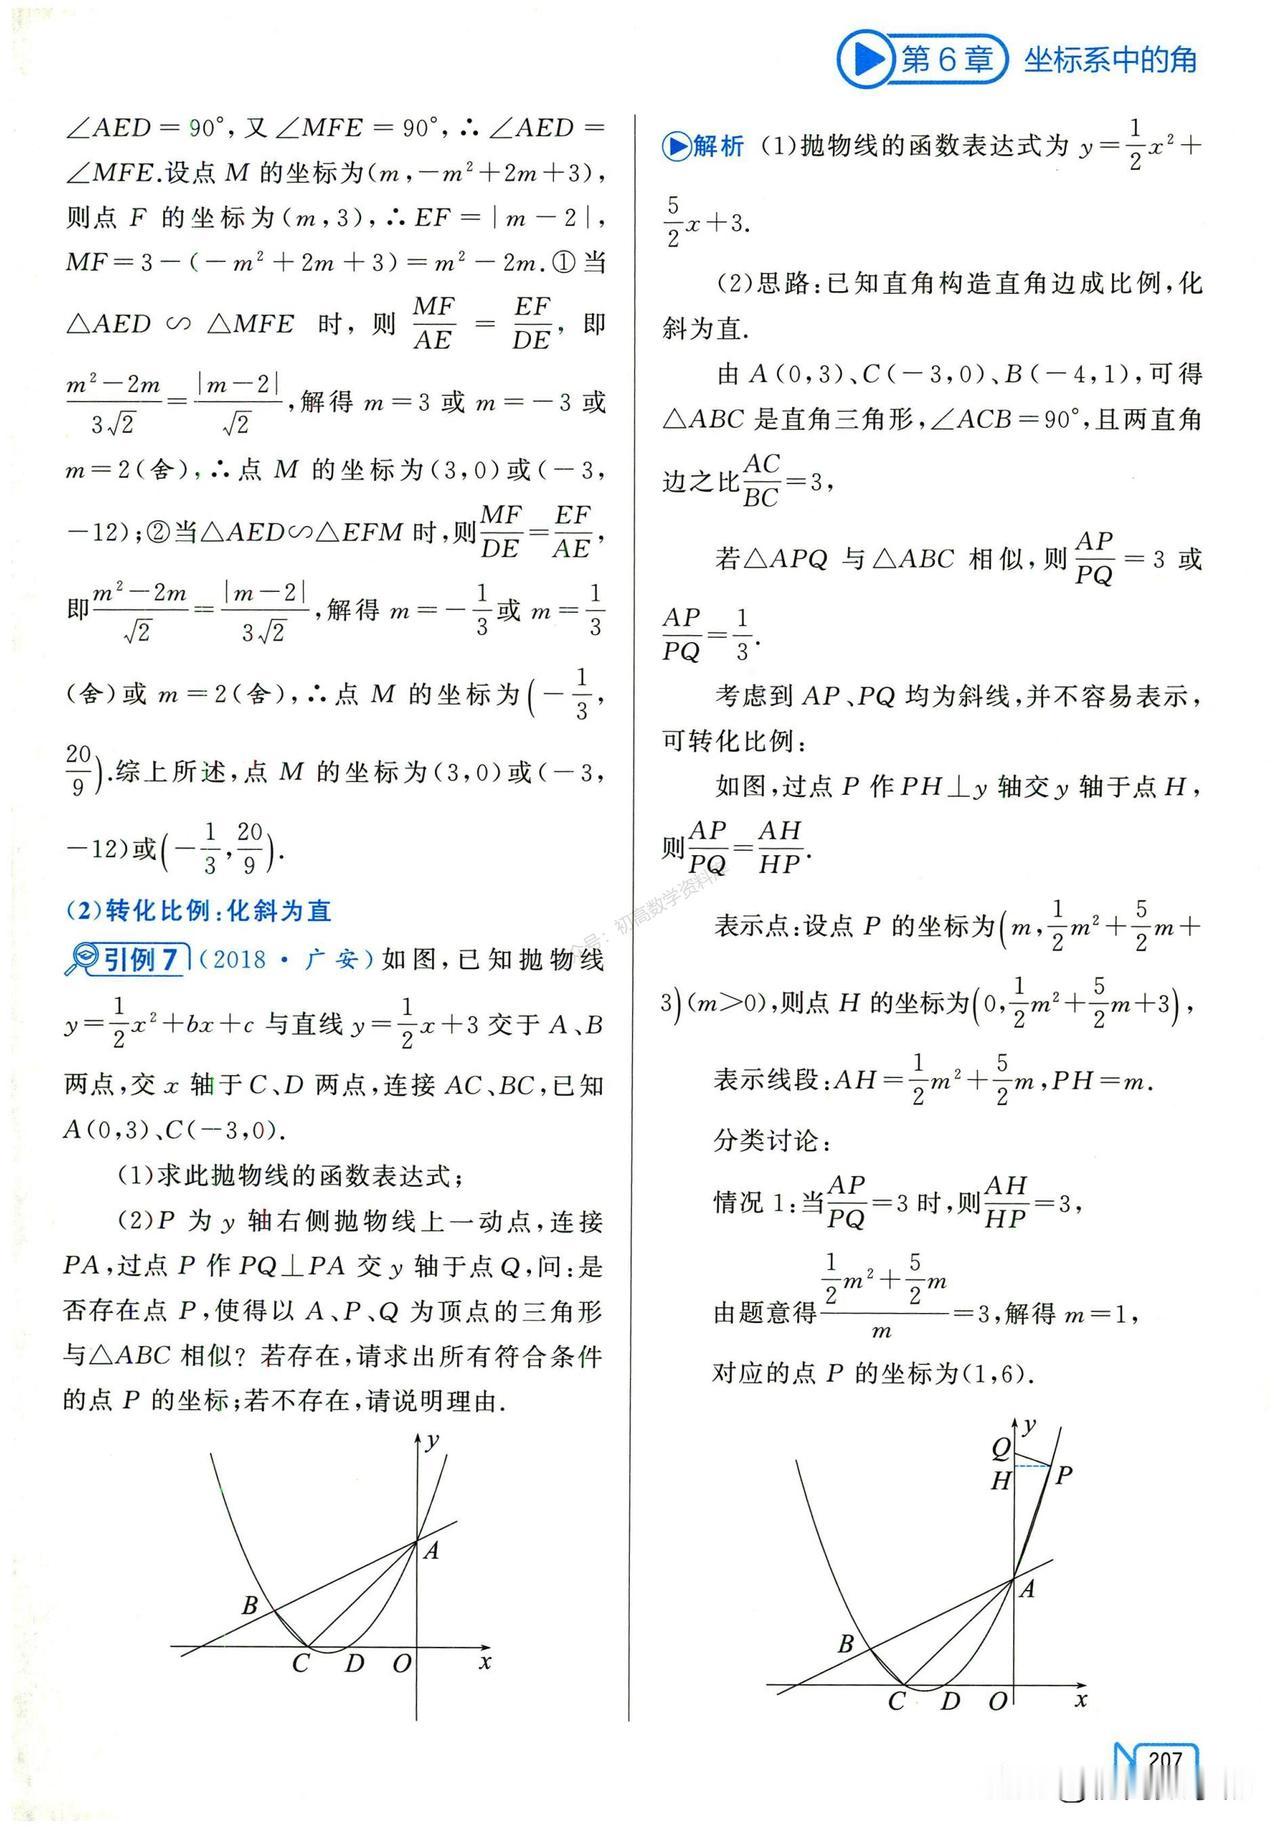 第6章 坐标系中的角
∠AED=90°,又∠MFE=90°,∴∠AED=
∠MFE.设点 M 的坐标为(m,-m²+2m+3),
则点 F 的坐标为(m,3),∴EF=|m-2|,
MF=3-(-m²+2m+3)=m²-2m.①当
△AED∽△MFE 时,则 MF/AE=EF/DE,即
(m²-2m)/(3√2)=|m-2|/√2,解得 m=3 或 m=-3 或
m=2(舍),∴点 M 的坐标为(3,0)或(-3,
-12);②当△AED∽△EFM 时,则 MF/DE=EF/AE,
即(m²-2m)/√2=|m-2|/(3√2),解得 m=-1/3 或 m=1/3
(舍)或 m=2(舍),∴点 M 的坐标为(-1/3,
20/9).综上所述,点 M 的坐标为(3,0)或(-3,
-12)或(-1/3,20/9).
(2)转化比例:化斜为直
引例7 (2018·广安)如图,已知抛物线
y=1/2x²+bx+c 与直线 y=1/2x+3 交于 A、B
两点,交 x 轴于 C、D 两点,连接 AC、BC,已知
A(0,3)、C(-3,0).
(1)求此抛物线的函数表达式;
(2)P 为 y 轴右侧抛物线上一动点,连接
PA,过点 P 作 PQ⊥PA 交 y 轴于点 Q,问:是
否存在点 P,使得以 A、P、Q 为顶点的三角形
与△ABC 相似?若存在,请求出所有符合条件
的点 P 的坐标;若不存在,请说明理由.
y
A
B
C D O x
解析 (1)抛物线的函数表达式为 y=1/2x²+
5/2x+3.
(2)思路:已知直角构造直角边成比例,化
斜为直.
由 A(0,3)、C(-3,0)、B(-4,1),可得
△ABC 是直角三角形,∠ACB=90°,且两直角
边之比 AC/BC=3,
若△APQ 与△ABC 相似,则 AP/PQ=3 或
AP/PQ=1/3.
考虑到 AP、PQ 均为斜线,并不容易表示,
可转化比例:
如图,过点 P 作 PH⊥y 轴交 y 轴于点 H,
则 AP/PQ=AH/HP.
表示点:设点 P 的坐标为(m,1/2m²+5/2m+
3)(m>0),则点 H 的坐标为(0,1/2m²+5/2m+3),
表示线段:AH=1/2m²+5/2m,PH=m.
分类讨论:
情况 1:当 AP/PQ=3 时,则 AH/HP=3,
由题意得(1/2m²+5/2m)/m=3,解得 m=1,
对应的点 P 的坐标为(1,6).
y
Q
H P
A
B
C D O x
众号:初高数学资料库
207